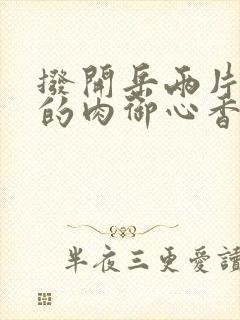 撥開岳兩片
的肉御心香
半夜三更愛讀